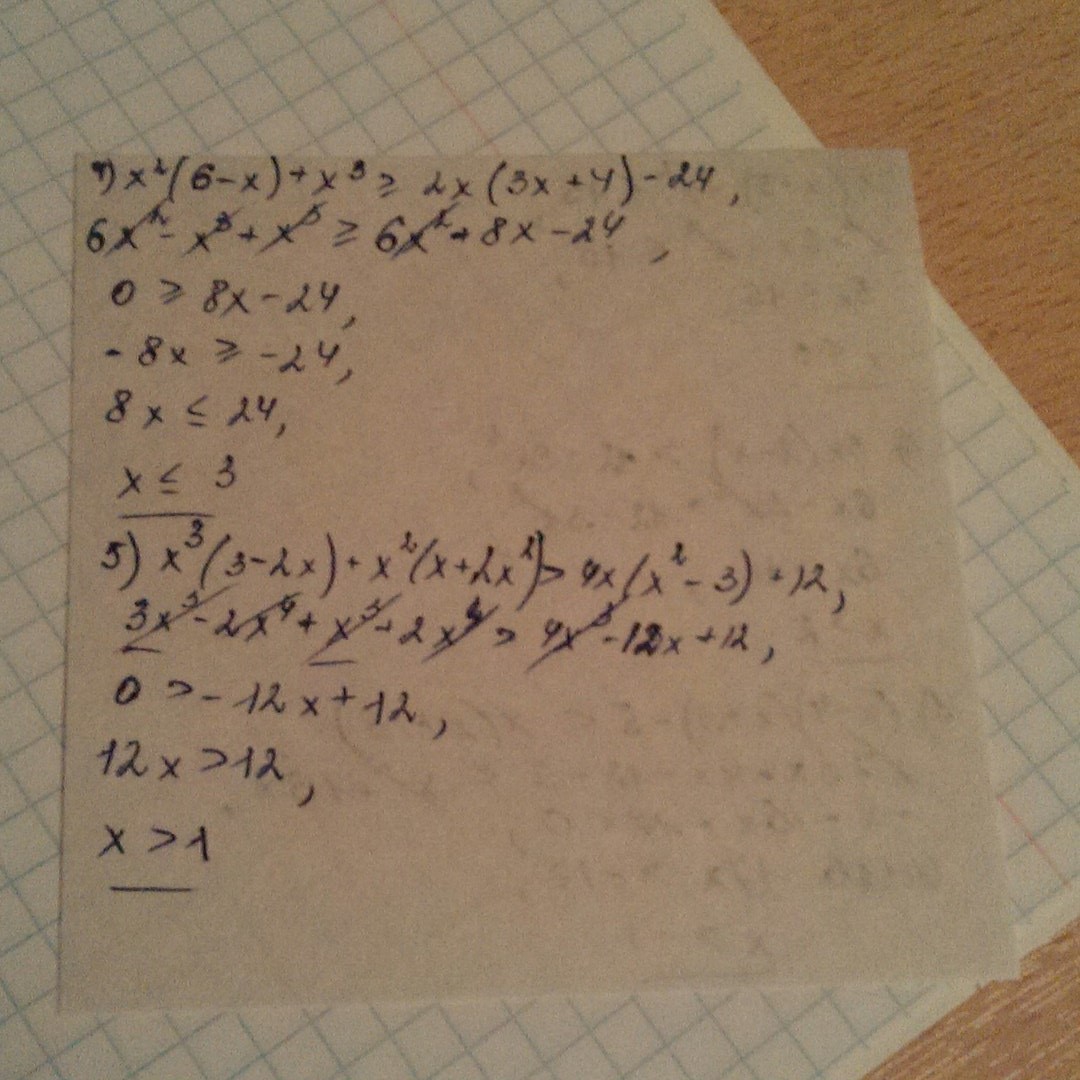 4) x²(6-x)+x³ ≥ 2x(3x+4)-24,
6x²-x³+x³ ≥ 6x²+8x-24,
0 ≥ 8x-24,
-8x ≥ -24,
8x ≤ 24,
x ≤ 3
5) x³(3-2x)+x²(x+2x²)> 4x(x²-3)+12,
3x³-2x⁴+x³+2x⁴ > 4x³-12x+12,
0 >-12x+12,
12x >12,
x >1